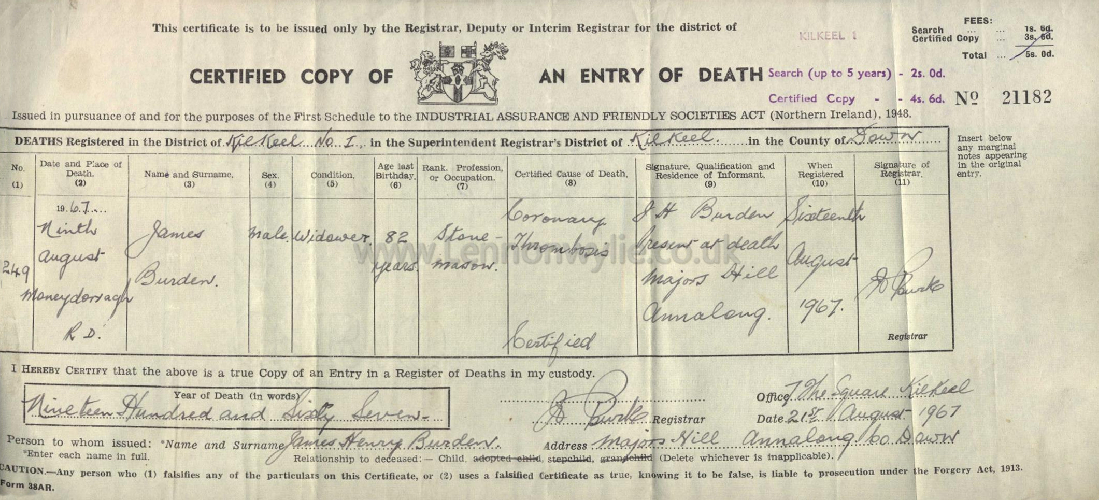 This certificate is to be issued only by the Registrar, Deputy or Interim Registrar for the district of
KILKEEL 1
FEES:
Search ... ... 1s. 6d.
Certified Copy ... 3s. 6d.
Total ... 5s. 0d.
CERTIFIED COPY OF AN ENTRY OF DEATH
Search (up to 5 years) - 2s. 0d.
Certified Copy - - 4s. 6d.
No 21182
Issued in pursuance of and for the purposes of the First Schedule to the INDUSTRIAL ASSURANCE AND FRIENDLY SOCIETIES ACT (Northern Ireland), 1948.
DEATHS Registered in the District of Kilkeel No. 1 in the Superintendent Registrar's District of Kilkeel in the County of Down
Insert below
any marginal
notes appearing
in the original
entry.
No.
(1)
Date and Place of
Death.
(2)
Name and Surname.
(3)
Sex.
(4)
Condition.
(5)
Age last
Birthday.
(6)
Rank, Profession,
or Occupation.
(7)
Certified Cause of Death.
(8)
Signature, Qualification and
Residence of Informant.
(9)
When
Registered
(10)
Signature of
Registrar.
(11)
249
1967
Ninth
August
Moneydorragh
R.D.
James
Burden.
Male
Widower
82
years
Stone-
mason.
Coronary
Thrombosis
Certified
J H Burden
Present at death
Majors Hill
Annalong.
Sixteenth
August
1967.
Registrar
www.Lennonwylie.co.uk
I HEREBY CERTIFY that the above is a true Copy of an Entry in a Register of Deaths in my custody.
Year of Death (in words)
Nineteen Hundred and Sixty Seven-
Registrar
Office 7 The Square Kilkeel
Date 21st August 1967
Person to whom issued: *Name and Surname James Henry Burden. Address Majors Hill Annalong Co Down
*Enter each name in full.
Relationship to deceased:— Child, adopted child, stepchild, grandchild (Delete whichever is inapplicable).
CAUTION.—Any person who (1) falsifies any of the particulars on this Certificate, or (2) uses a falsified Certificate as true, knowing it to be false, is liable to prosecution under the Forgery Act, 1913.
Form 38AR.